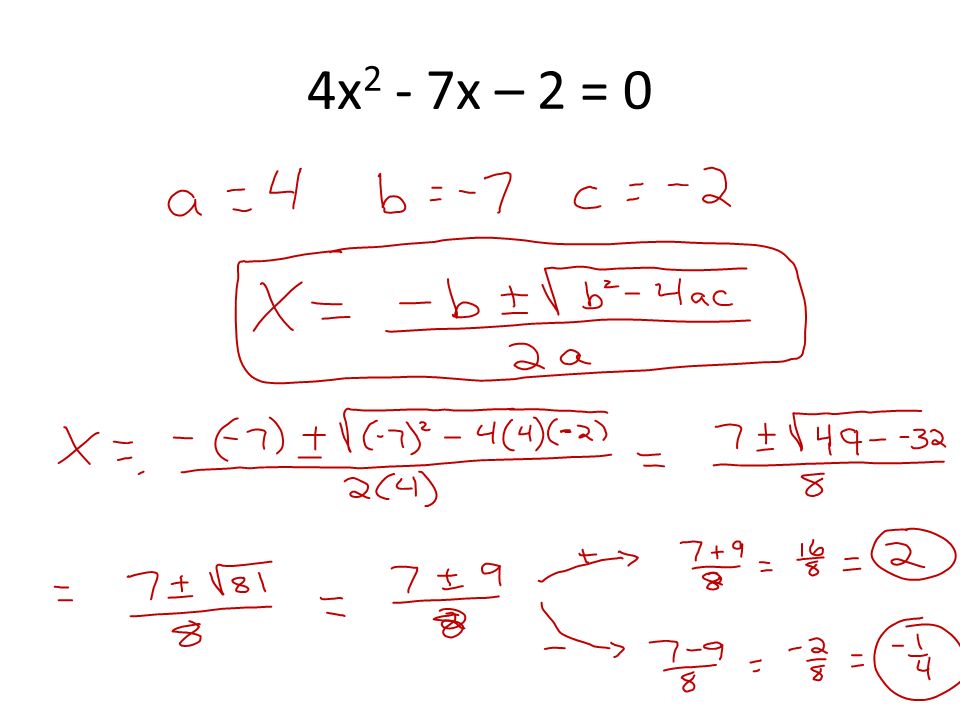 4x² - 7x – 2 = 0
a = 4 b = -7 c = -2
X = (-b ± √(b² - 4ac)) / (2a)
X = (-(-7) ± √((-7)² - 4(4)(-2))) / (2(4)) = (7 ± √(49 - -32)) / 8
= (7 ± √81) / 8 = (7 ± 9) / 8
+ → (7+9)/8 = 16/8 = 2
- → (7-9)/8 = -2/8 = -1/4